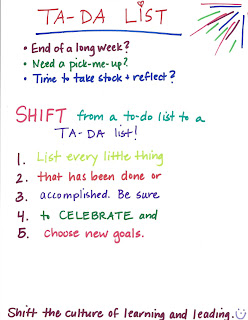 TA-DA LIST
• End of a long week?
• Need a pick-me-up?
• Time to take stock + reflect?
SHIFT from a to-do list to a
TA-DA list!
1. List every little thing
2. that has been done or
3. accomplished. Be sure
4. to CELEBRATE and
5. choose new goals.
Shift the culture of learning and leading.